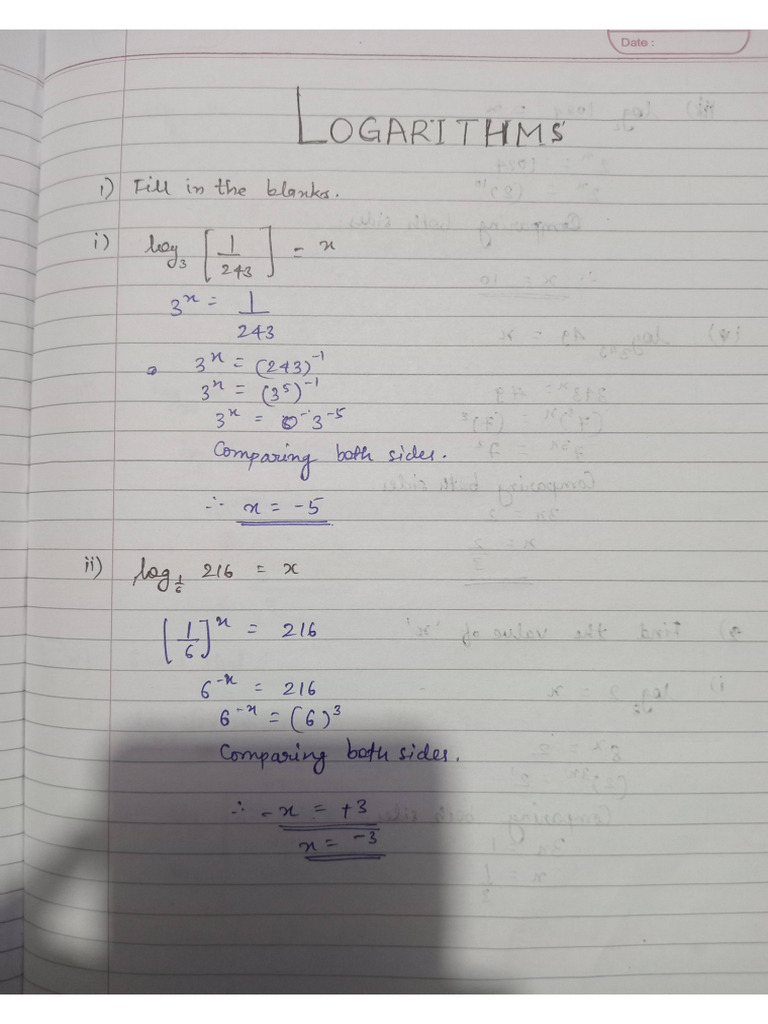 Date :
LOGARITHMS
1) Fill in the blanks.
i) log₃ [1/243] = x
3ˣ = 1/243
3ˣ = (243)⁻¹
3ˣ = (3⁵)⁻¹
3ˣ = 3⁻⁵
Comparing both sides.
∴ x = -5
ii) log_{1/6} 216 = x
[1/6]ˣ = 216
6⁻ˣ = 216
6⁻ˣ = (6)³
Comparing both sides.
∴ -x = +3
x = -3